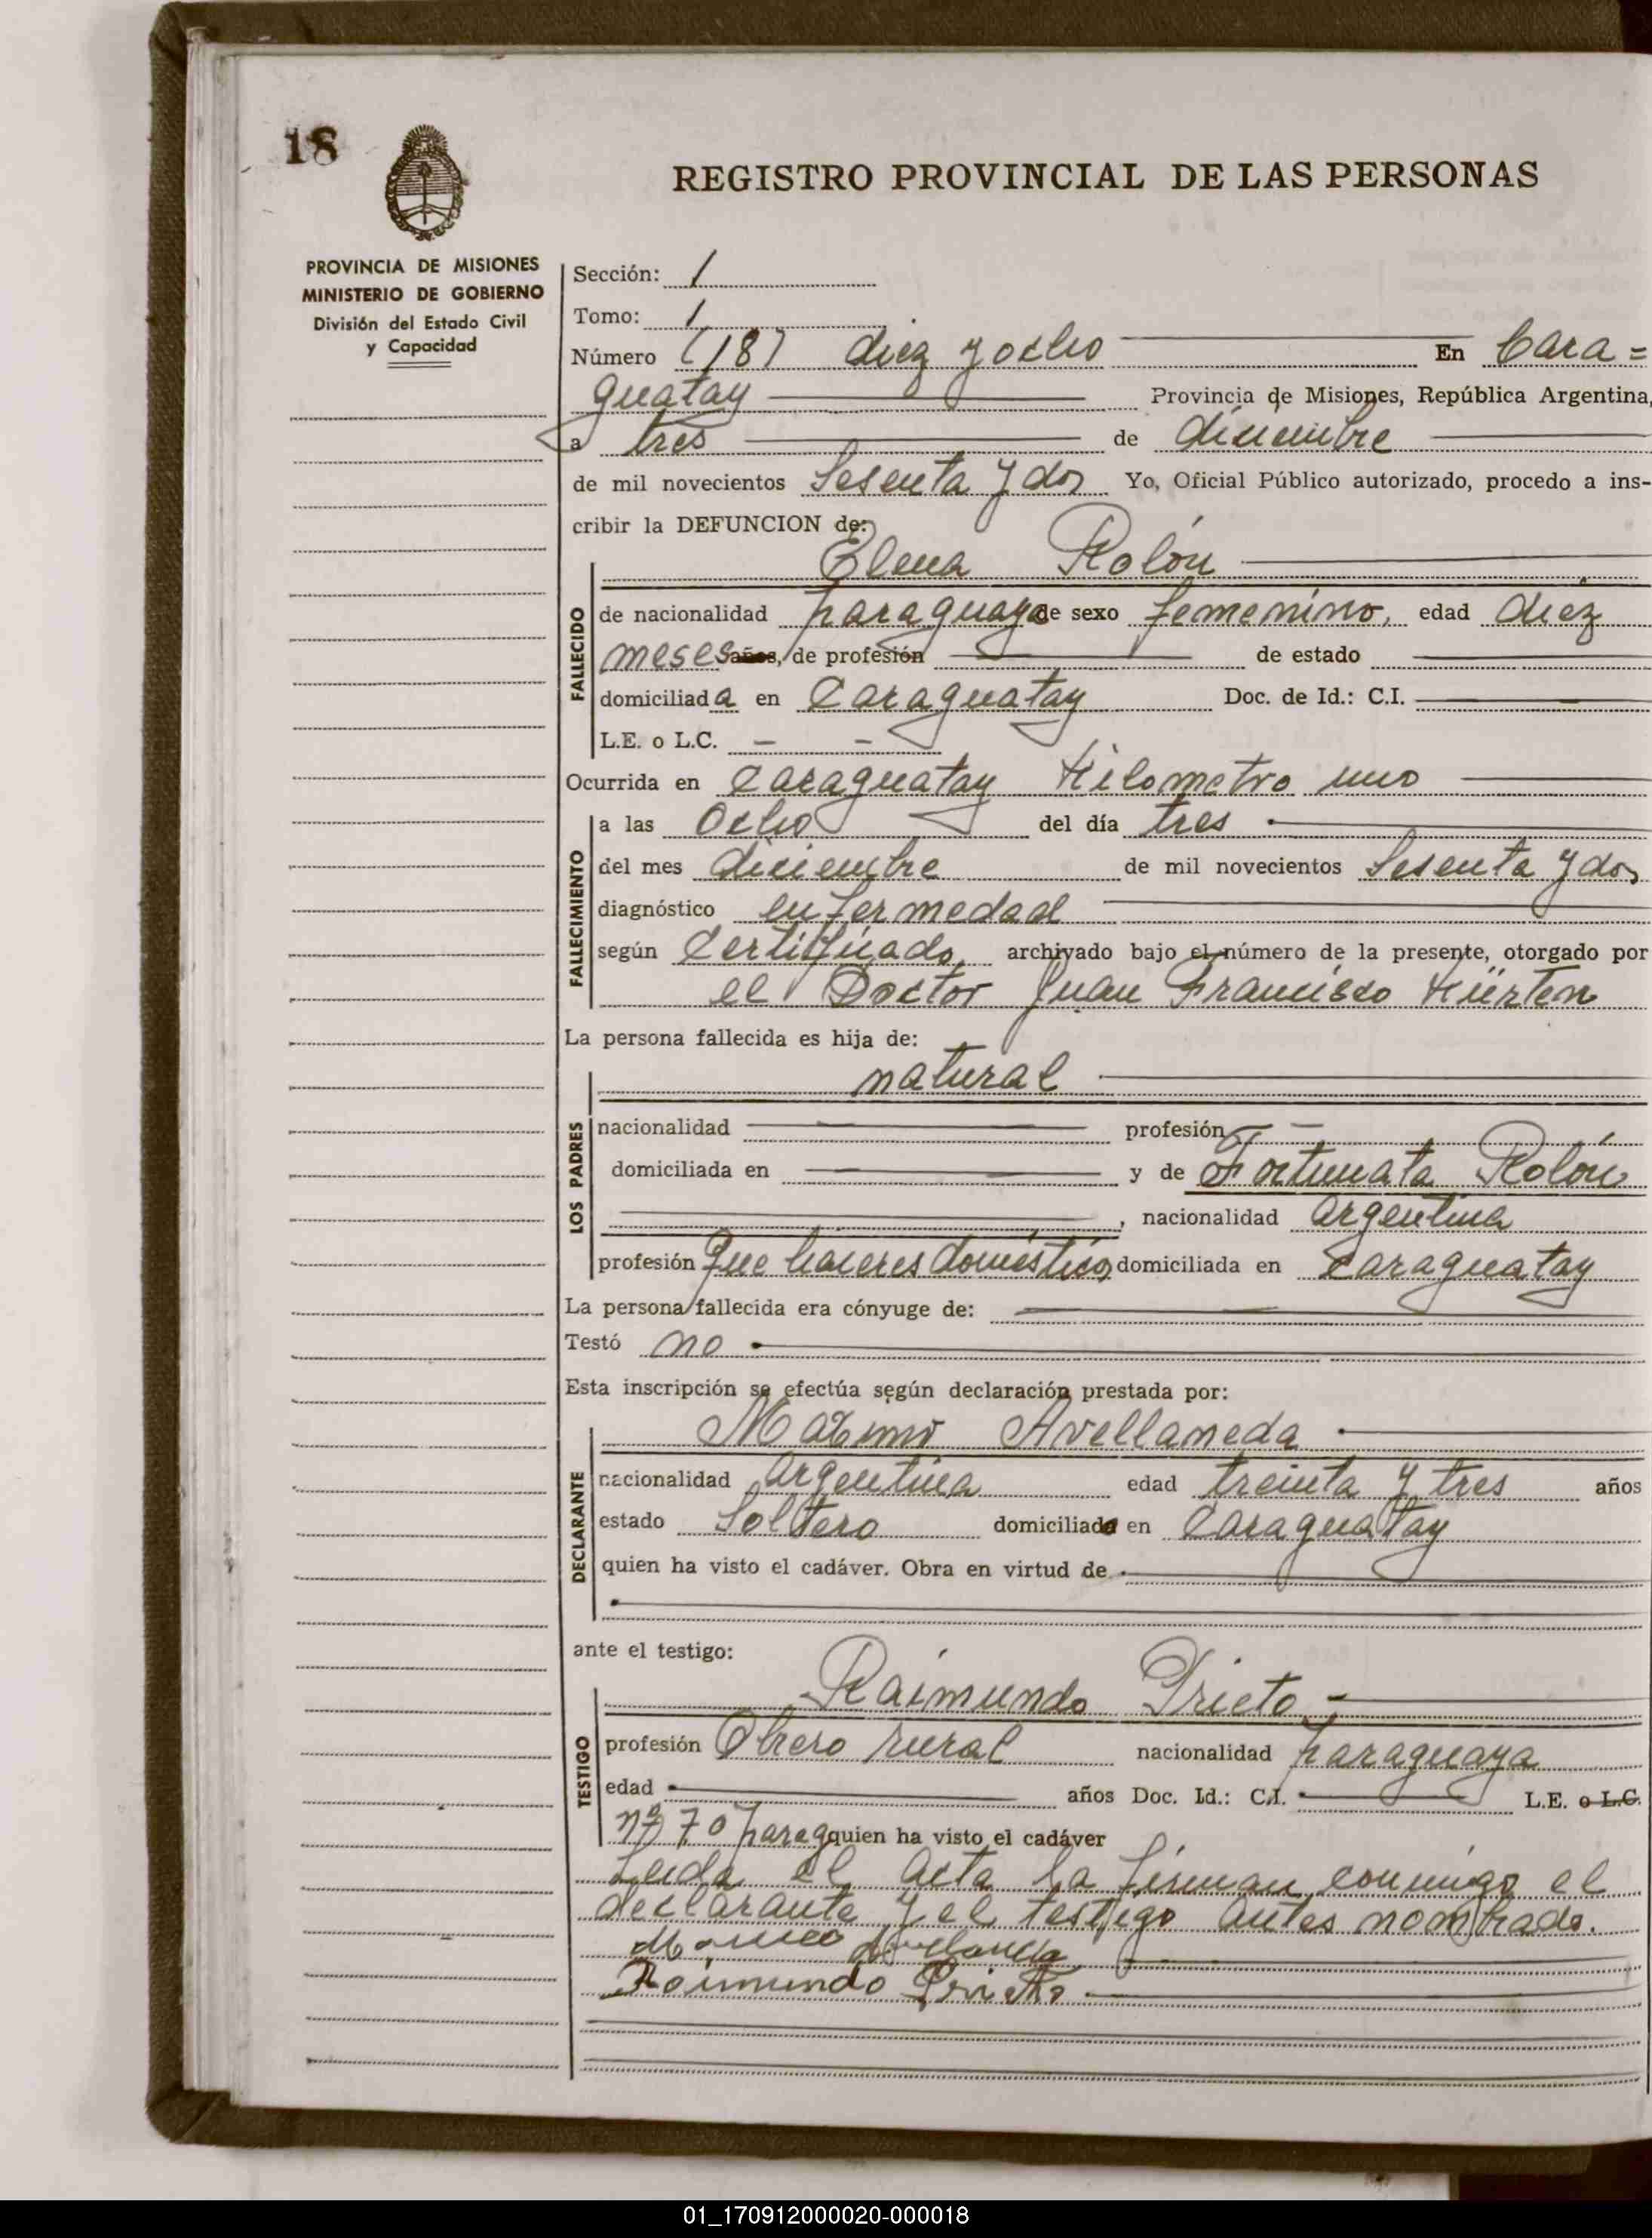 18
REGISTRO PROVINCIAL DE LAS PERSONAS
PROVINCIA DE MISIONES
MINISTERIO DE GOBIERNO
División del Estado Civil
y Capacidad
Sección: 1
Tomo: 1
Número (18) diez y ocho En Cara=
guatay Provincia de Misiones, República Argentina,
a tres de diciembre
de mil novecientos Sesenta y dos Yo, Oficial Público autorizado, procedo a ins-
cribir la DEFUNCION de:
Elena Rolón
FALLECIDO
de nacionalidad paraguaya de sexo femenino, edad diez
meses años, de profesión de estado
domiciliada en Caraguatay Doc. de Id.: C.I.
L.E. o L.C. - -
Ocurrida en Caraguatay Kilometro uno
FALLECIMIENTO
a las Ocho del día tres
del mes diciembre de mil novecientos Sesenta y dos
diagnóstico enfermedad
según Certificado, archivado bajo el número de la presente, otorgado por
el Doctor Juan Francisco Kürten
La persona fallecida es hija de:
natural
LOS PADRES
nacionalidad profesión
domiciliada en y de Fortunata Rolón
, nacionalidad argentina
profesión Que haceres domésticos domiciliada en Caraguatay
La persona fallecida era cónyuge de:
Testó no
Esta inscripción se efectúa según declaración prestada por:
Maximo Avellaneda
DECLARANTE
nacionalidad argentina edad treinta y tres años
estado Soltero domiciliado en Caraguatay
quien ha visto el cadáver. Obra en virtud de
ante el testigo:
Raimundo Prieto
TESTIGO
profesión Obrero rural nacionalidad paraguaya
edad años Doc. Id.: C.I. L.E. o L.C.
nº 707 parag quien ha visto el cadáver
Leida el acta la firman conmigo el
declarante y el testigo antes nombrado.
Avellaneda
Raimundo Prieto
01_170912000020-000018